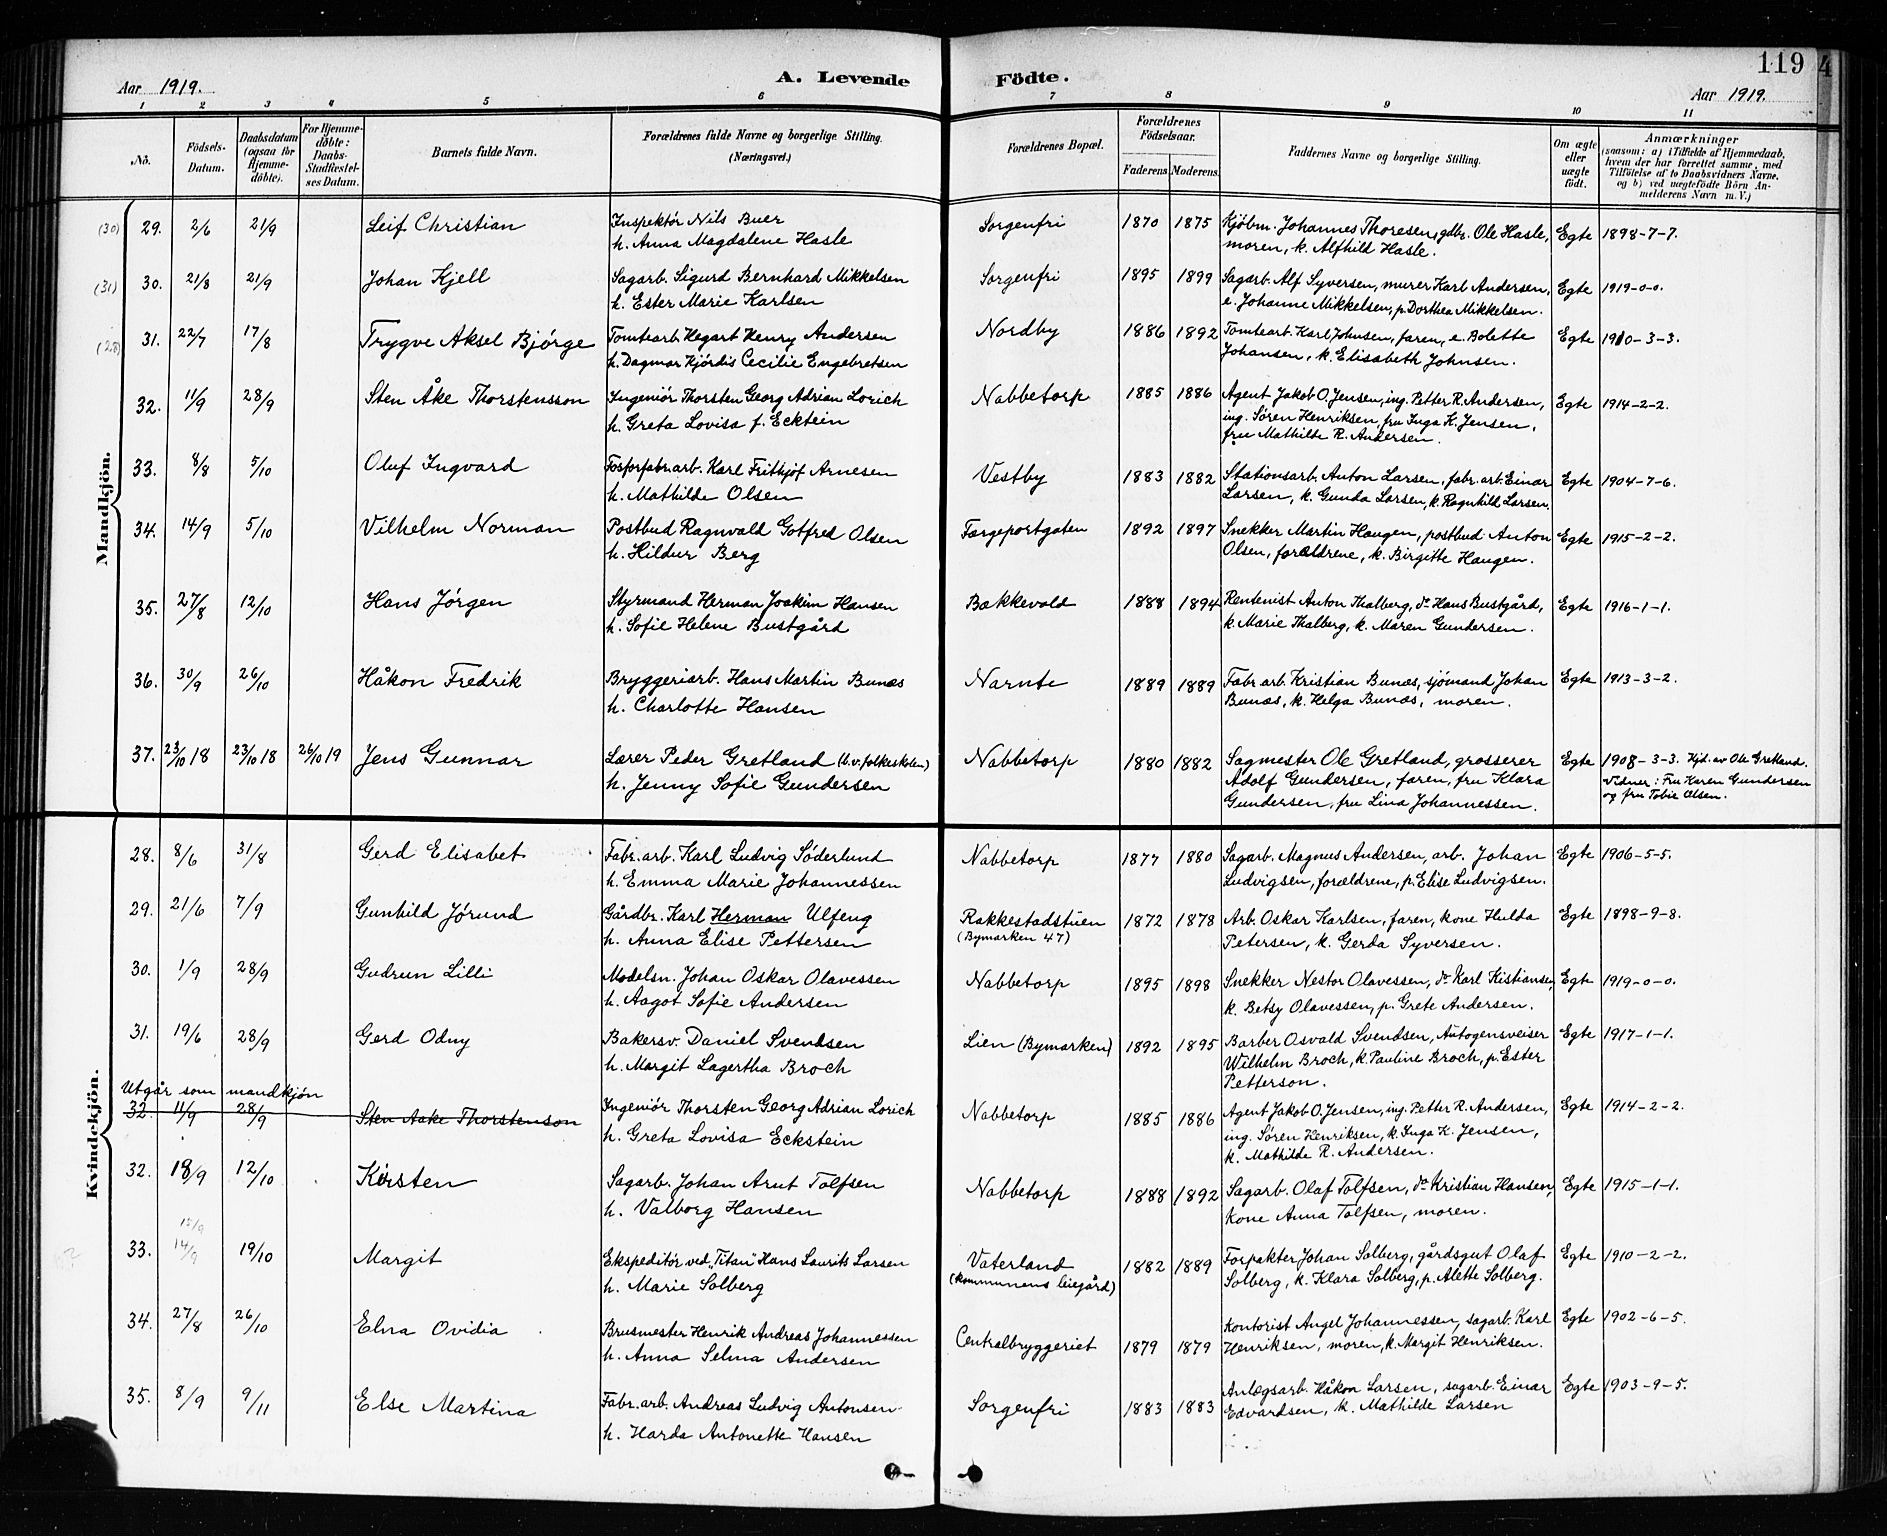 119
4
Aar 1919.
A. Levende Födte.
Aar 1919.
1 2 3 4 5 6 7 8 9 10 11
No.
Födsels-
Datum.
Daabsdatum
(ogsaa for
Hjemme-
döbte).
For Hjemme-
döbte:
Daabs-
Stadfæstel-
ses Datum.
Barnets fulde Navn.
Forældrenes fulde Navne og borgerlige Stilling.
(Næringsvei.)
Forældrenes Bopæl.
Forældrenes
Födselsaar.
Faderens Moderens.
Faddernes Navne og borgerlige Stilling.
Om ægte
eller
uægte
födt.
Anmærkninger
(saasom: a) i Tilfælde af Hjemmedaab,
hvem der har forrettet samme, med
Tilföielse af to Daabsvidners Navne,
og b) ved uægtefödte Börn An-
melderens Navn m. V.)
Mandkjön.
(30) 29. 2/6 21/9 Leif Christian Inspektör Nils Buer Sorgenfri 1870 1875 Kjöbm. Johannes Thoresen, gdbr. Ole Hasle, Egte 1898-7-7.
h. Anna Magdalene Hasle moren, k. Alfhild Hasle.
(31) 30. 21/8 21/9 Johan Kjell Sagarb. Sigurd Bernhard Mikkelsen Sorgenfri 1895 1899 Sagarb. Alf Syversen, murer Karl Andersen, Egte 1919-0-0.
h. Ester Marie Karlsen e. Johanne Mikkelsen, p. Dorthea Mikkelsen.
(28) 31. 22/7 17/8 Trygve Aksel Bjørge Tomtearb. Hegart Henry Andersen Nordby 1886 1892 Tomtearb. Karl Johnsen, faren, e. Bolette Egte 1910-3-3.
h. Dagmar Hjördis Cecilie Engebretsen Johansen, k. Elisabeth Johnsen.
32. 11/9 28/9 Sten Åke Thorstensson Ingeniör Thorsten Georg Adrian Lorich Nabbetorp 1885 1886 Agent Jakob O. Jensen, ing. Petter R. Andersen, Egte 1914-2-2.
h. Greta Lovisa f. Ecktein ing. Sören Henriksen, fru Inga K. Jensen,
fru Mathilde R. Andersen.
33. 8/8 5/10 Oluf Ingvard Fosforfabr.arb. Karl Fritkjöf Arnesen Vestby 1883 1882 Stationsarb. Anton Larsen, fabr. arb. Einar Egte 1904-7-6.
h. Mathilde Olsen Larsen, k. Gunda Larsen, k. Ragnhild Larsen.
34. 14/9 5/10 Vilhelm Norman Postbud Ragnvald Gotfred Olsen Færgeportgaten 1892 1897 Snekker Martin Haugen, postbud Anton Egte 1915-2-2.
h. Hildur Berg Olsen, forældrene, k. Birgitte Haugen.
35. 27/8 12/10 Hans Jörgen Styrmand Herman Joakim Hansen Bækkevold 1888 1894 Rentenist Anton Thalberg, do Hans Bustgård, Egte 1916-1-1.
h. Sofie Helene Bustgård k. Marie Thalberg, k. Maren Gundersen.
36. 30/9 26/10 Håkon Fredrik Bryggeriarb. Hans Martin Bunæs Narnte 1889 1889 Fabr. arb. Kristian Bunæs, sjömand Johan Egte 1913-3-2.
h. Charlotte Hansen Bunæs, k. Helga Bunæs, moren.
37. 23/10 18 23/10 18 26/10 19 Jens Gunnar Lærer Peder Gretland (v. folkeskolen) Nabbetorp 1880 1882 Sagmester Ole Gretland, grosserer Egte 1908-3-3. Hjd. av Ole Gretland.
h. Jenny Sofie Gundersen Adolf Gundersen, faren, fru Klara Vidner: Fru Karen Gundersen
Gundersen, fru Lina Johannessen. og fru Tobie Olsen.
Kvindekjön.
28. 8/6 31/8 Gerd Elisabet Fabr. arb. Karl Ludvig Söderlund Nabbetorp 1877 1880 Sagarb. Magnus Andersen, arb. Johan Egte 1906-5-5.
h. Emma Marie Johannessen Ludvigsen, forældrene, p. Elise Ludvigsen.
29. 21/6 7/9 Gunhild Jörund Gårdbr. Karl Herman Ulfeng Rakkestadstuen 1872 1878 Arb. Oskar Karlsen, faren, kone Hulda Egte 1898-9-8.
h. Anna Elise Pettersen (Bymarken 47) Petersen, k. Gerda Syversen.
30. 1/9 28/9 Gudrun Lilli Modelsn. Johan Oskar Olavessen Nabbetorp 1895 1898 Snekker Nestor Olavessen, do Karl Kistiansen, Egte 1919-0-0.
h. Aagot Sofie Andersen k. Betsy Olavessen, p. Grete Andersen.
31. 19/6 28/9 Gerd Odny Bakersv. Daniel Svendsen Lien (Bymarken) 1892 1895 Barber Osvald Svendsen, Autogensveiser Egte 1917-1-1.
h. Margit Lagertha Broch Wilhelm Broch, k. Pauline Broch, p. Ester
Petterson.
Utgår som mandkjön
32. 11/9 28/9 Sten Aake Thorstenson Ingeniör Thorsten Georg Adrian Lorich Nabbetorp 1885 1886 Agent Jakob O. Jensen, ing. Petter R. Andersen, Egte 1914-2-2.
h. Greta Lovisa Eckstein ing. Sören Henriksen, k. Inga K. Jensen,
k. Mathilde R. Andersen.
32. 18/9 12/10 Kirsten Sagarb. Johan Arnt Tolfsen Nabbetorp 1888 1892 Sagarb. Olaf Tolfsen, do Kristian Hansen, Egte 1915-1-1.
h. Valborg Hansen kone Anna Tolfsen, moren.
15/9
33. 14/9 19/10 Margit Ekspeditör ved "Titan" Hans Laurits Larsen Vaterland 1882 1889 Forpakter Johan Solberg, gårdsgut Olaf Egte 1910-2-2.
h. Marie Solberg (kommunens leiegård) Solberg, k. Klara Solberg, p. Alette Solberg.
34. 27/8 26/10 Elna Ovidia Brusmester Henrik Andreas Johannessen Centralbryggeriet 1879 1879 Kontorist Angel Johannessen, sagarb. Karl Egte 1902-6-5.
h. Anna Selma Andersen Henriksen, moren, k. Margit Henriksen.
35. 8/9 9/11 Else Martina Fabr. arb. Andreas Ludvig Antonsen Sorgenfri 1883 1883 Anlægsarb. Håkon Larsen, sagarb. Einar Egte 1903-9-5.
h. Harda Antonette Hansen Edvardsen, k. Mathilde Larsen